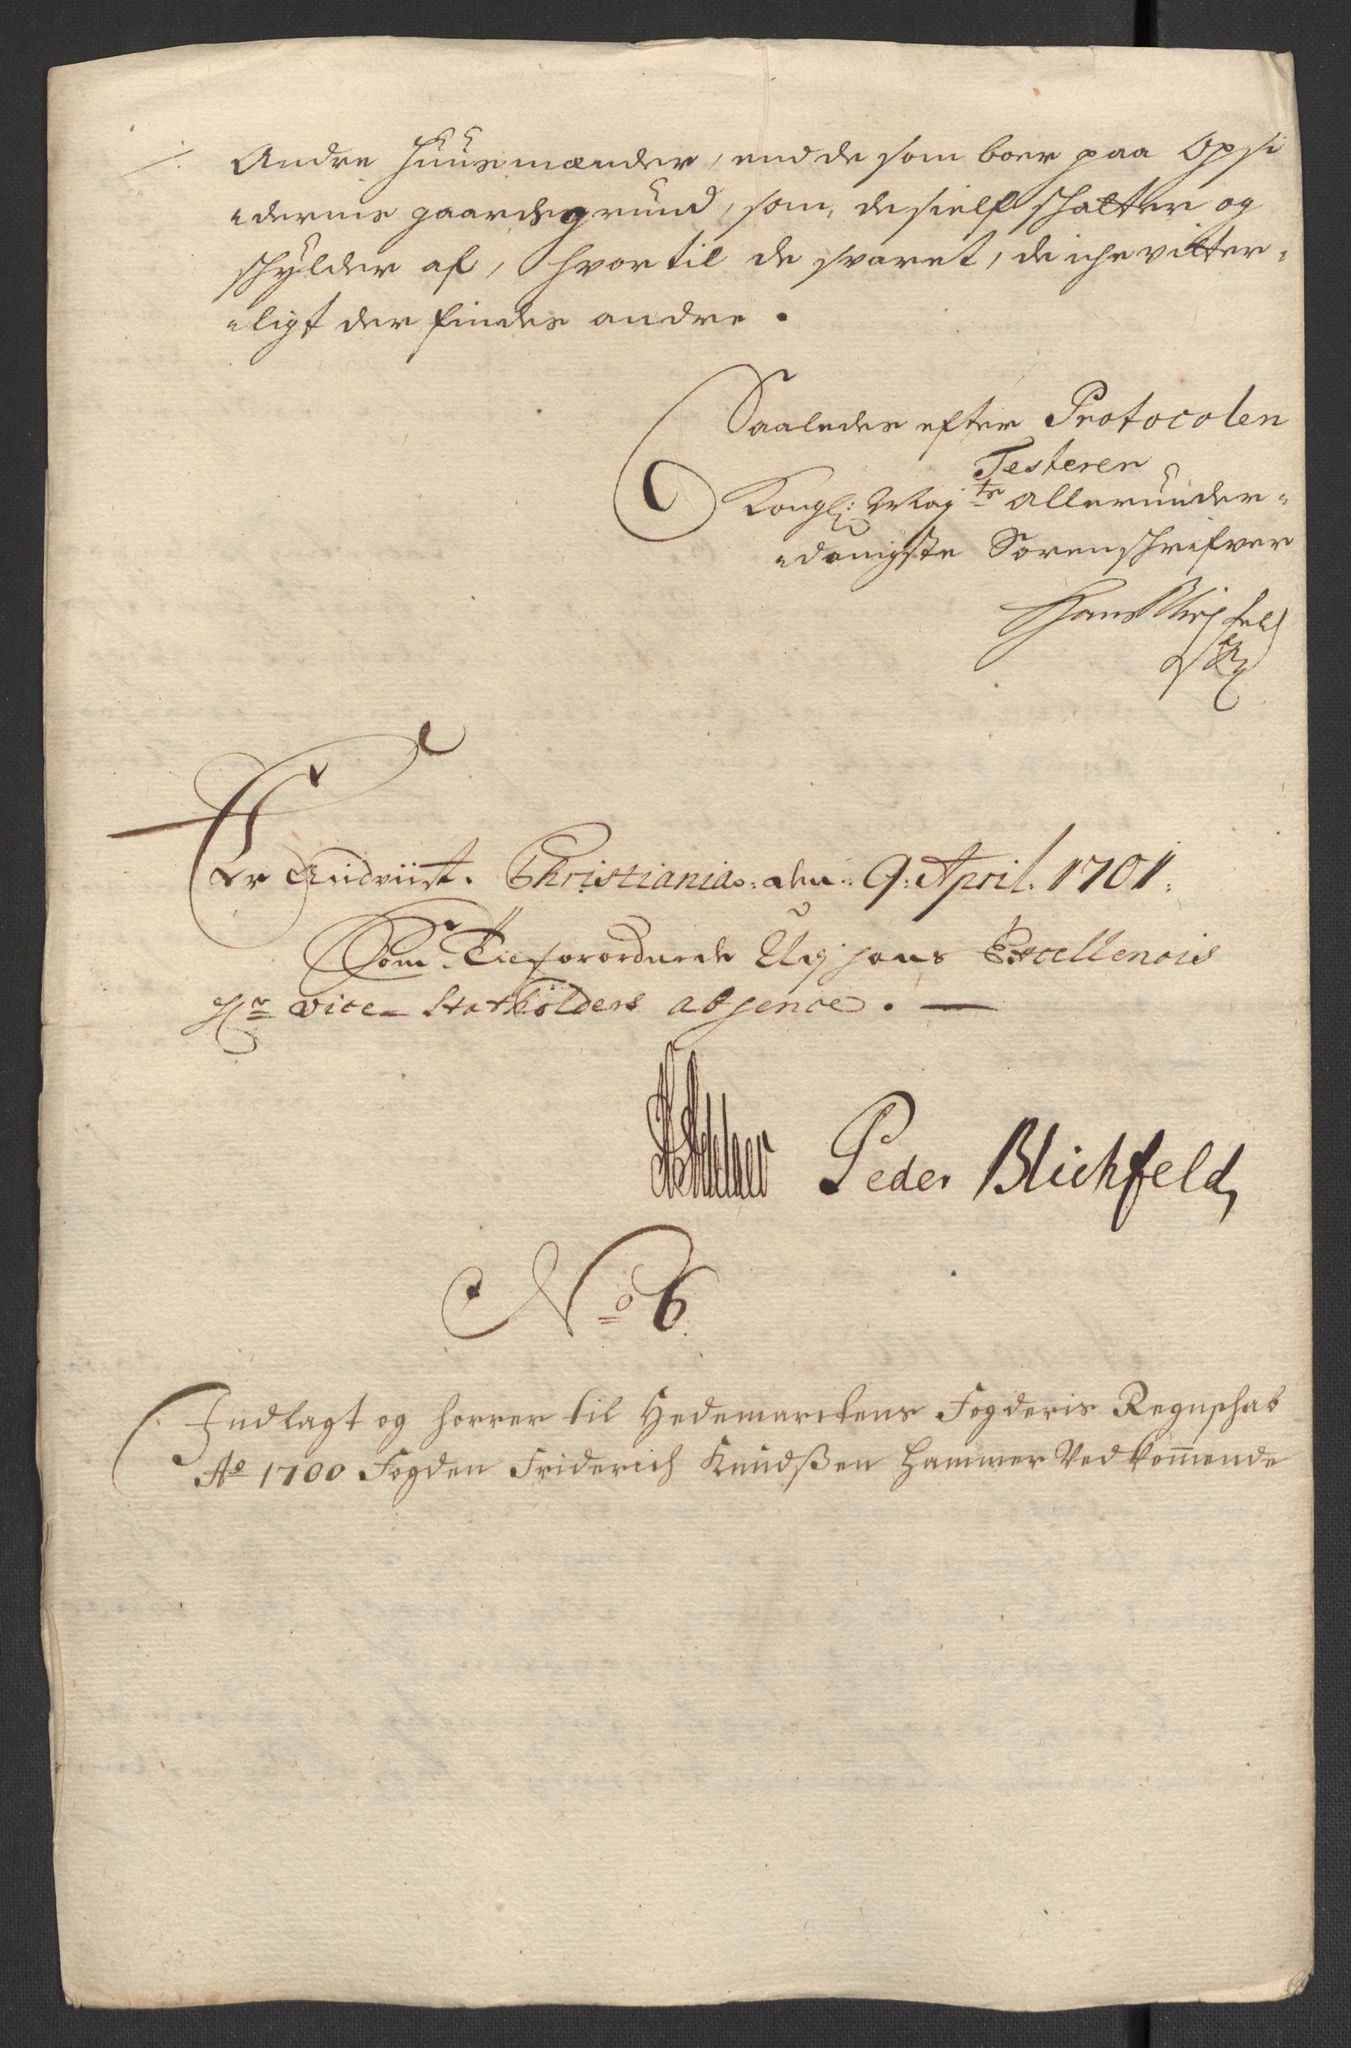 Andre Huusmænder, end de som boer paa Opsi
dernis gaardsgrund, som, de sielf schatter og
schylder af, hvortil de svaret, de iche vitter=
ligt der findes andre.
Saaledes efter Protocolen
Testerer
Kongl: May ts allerunder=
danigste Sorenschrifver
Hans Blichfeld
Er Andviist. Christiania: den: 9: April. 1701.
Som Tilforordnede Udj hans Excellences
Hr vice-Statholders absence. —
Peder Blichfeld,
No 6.
Indlagt og hörrer til Hedemarckens Fogderis Regnschab
Ao 1700 Fogden Friderich Knudßen Hammer Vedkommende